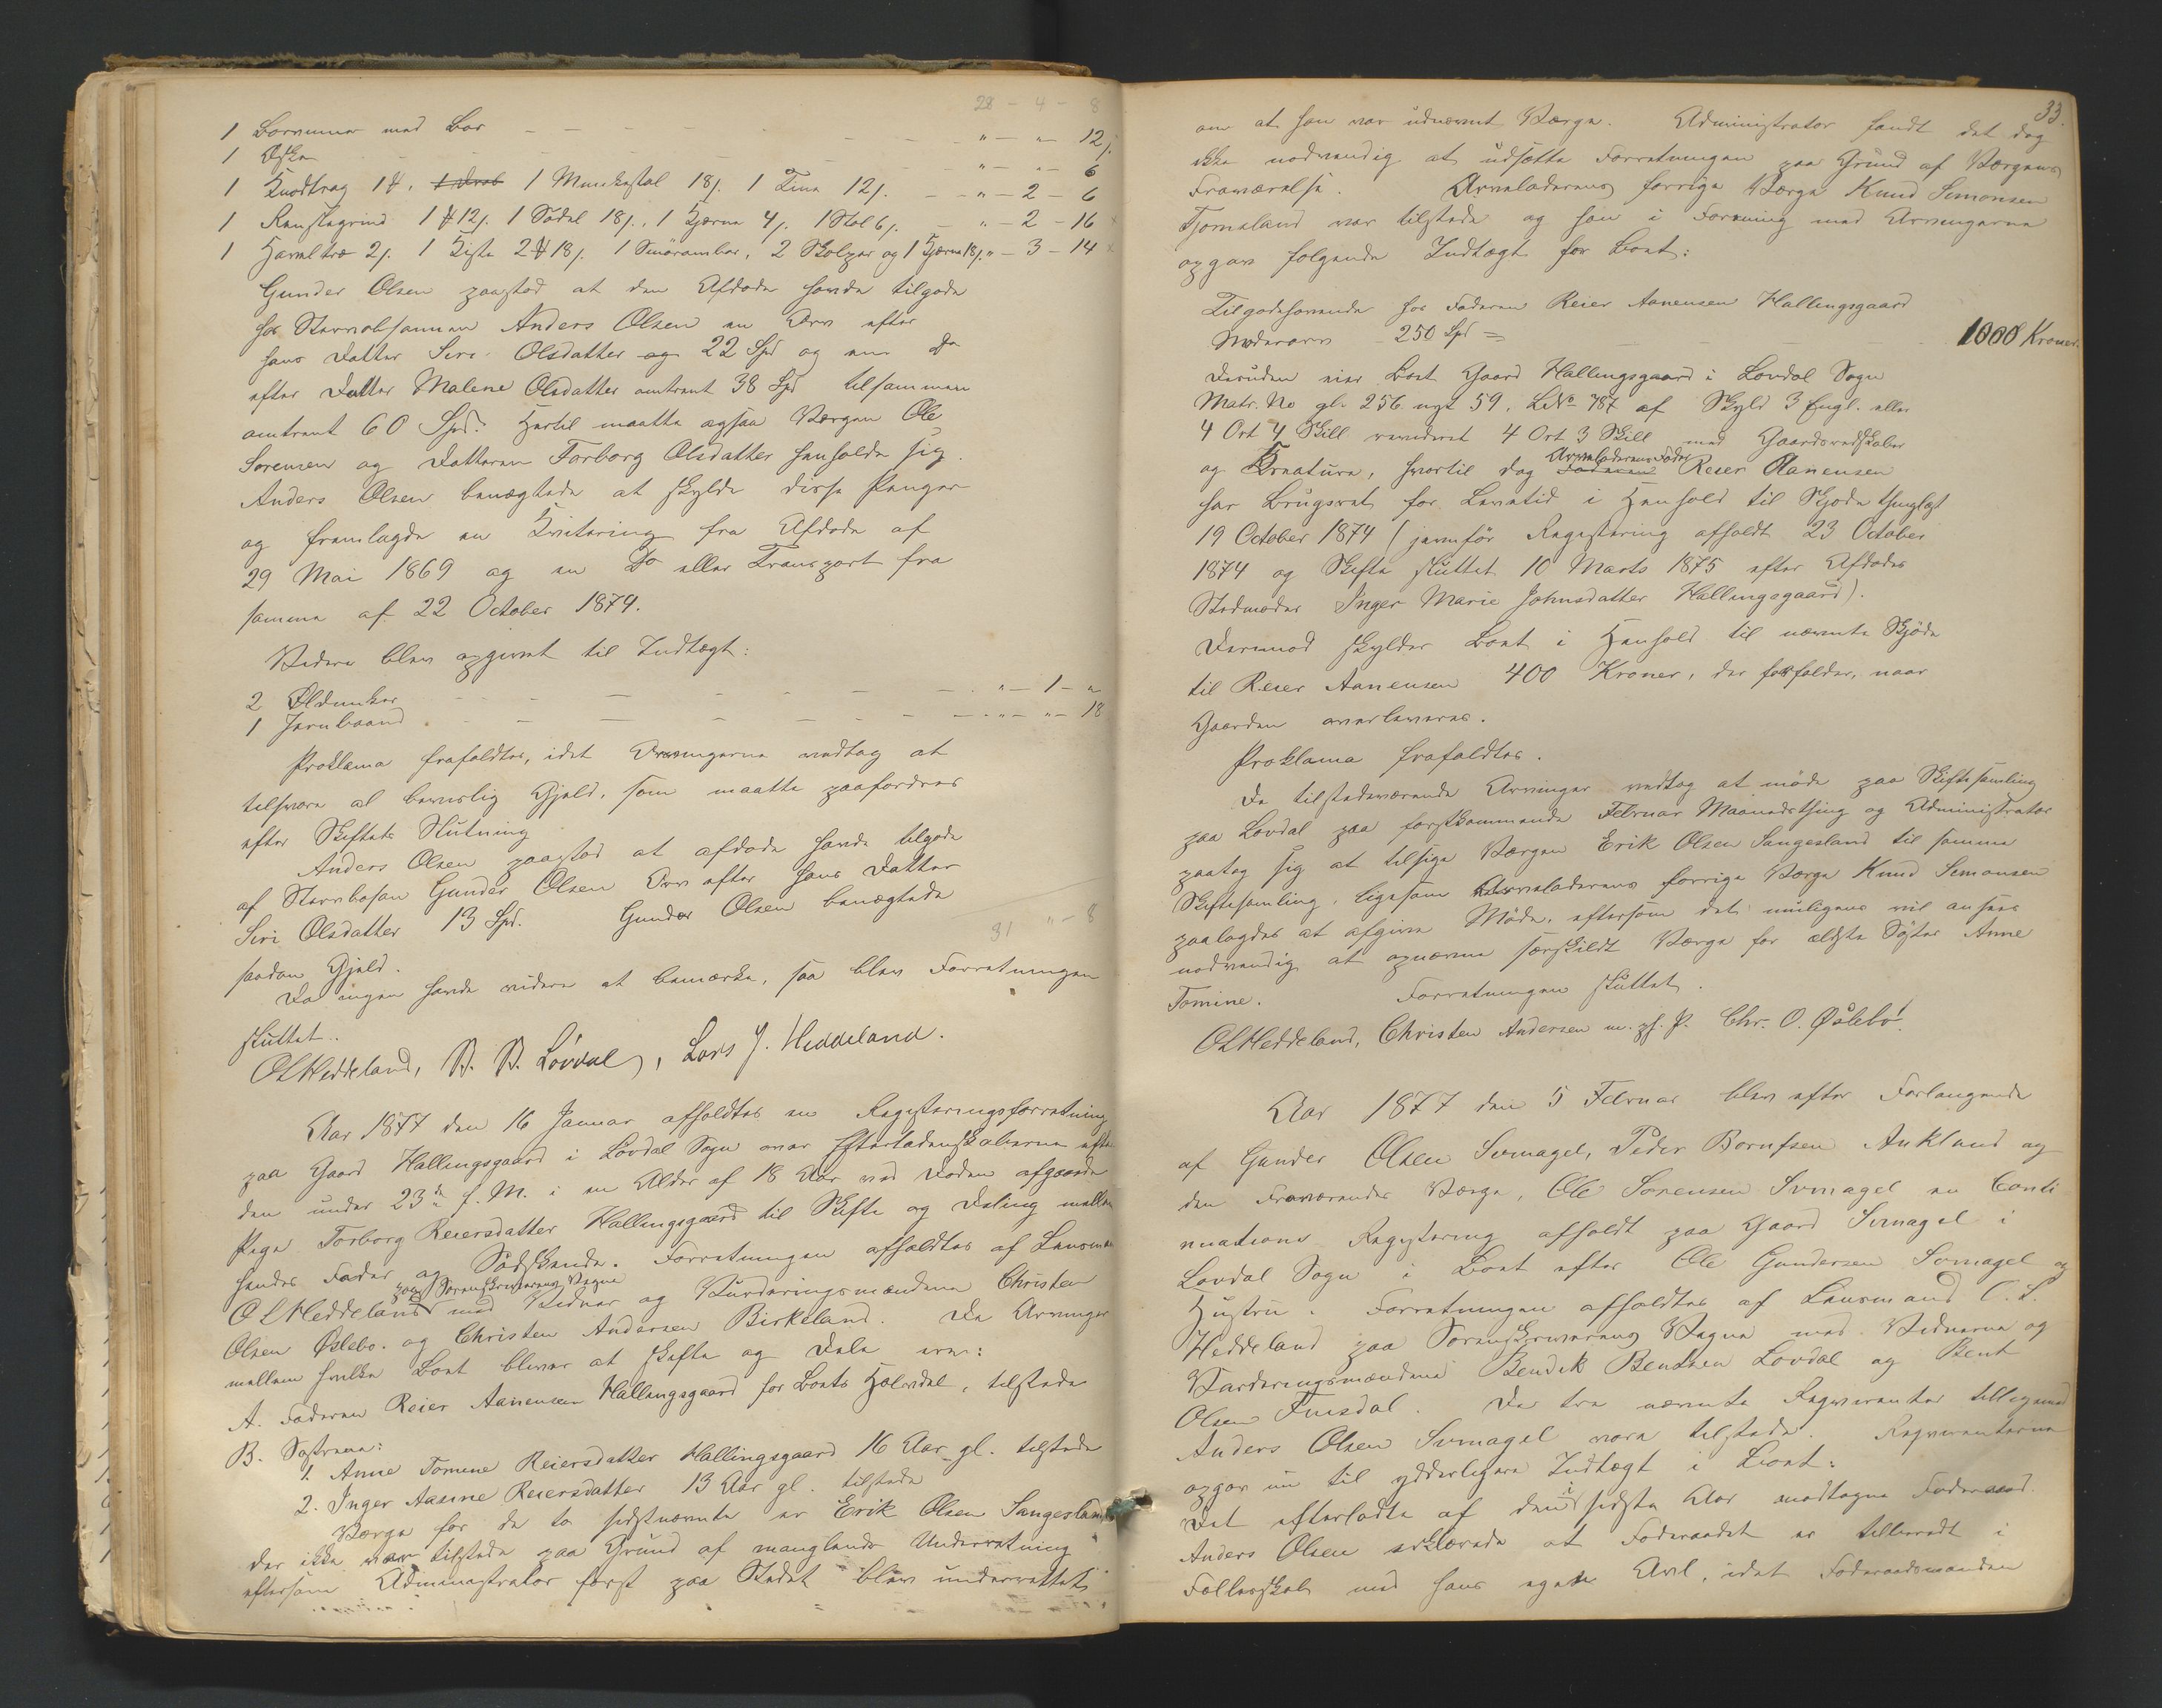 28 - 4 - 8
1 Borvinne med Bor — — — „ — „ — 12/.
1 Øske — — — „ — „ — 6
1 Knodtrog 1 #. 1 Munkestol 18/. 1 Tine 12/. — „ — 2 — 6
1 1 # 12/. 1 Sadel 18/., 1 Kjærne 4/. 1 Stol 6/. — „ — 2 — 16
1 2/. 1 Kiste 2 # 18/. 1 Smörambar, 2 og 1 Kjærne 18/. „ — 3 — 14
Gunder Olsen paastod at den Afdøde havde tilgode
hos Stervbosønnen Anders Olsen en Arv efter
hans Datter Siri Olsdatter og 22 Spd og en Do
efter Datter Malene Olsdatter omtrent 38 Spd tilsammen
omtrent 60 Spd. Hertil maatte ogsaa Værgen Ole
Sorensen og Datteren Torborg Olsdatter henholde sig.
Anders Olsen benægtede at skylde disse Penger
og fremlagde en Kvitering fra Afdøde af
29 Mai 1869 og en Do eller Transport fra
samme af 22 October 1874.
Videre blev opgivet til Indtægt:
2 Øldunker — — — „ — 1 — „
1 Jernbaand — — — „ — „ — 18
Proklama frafaldtes, idet Arvingerne vedtog at
tilsvare al bevislig Gjeld, som maatte paafordres
efter Skiftets Slutning
Anders Olsen paastod at afdøde havde tilgode
af Stervbosøn Gunder Olsen Arv efter hans Datter
Siri Olsdatter 13 Spd. Gunder Olsen benægtede
saadan Gjeld.
31 „ - 8
Da ingen havde videre at bemærke, saa blev Forretningen
sluttet.
O L Heddeland, B. B. Lövdal, Lars J. Heddeland.
Aar 1877 den 16 Januar afholdtes en Registeringsforretning
paa Gaard Hallingsgaard i Lövdal Sogn over Efterladenskaberne efter
den under 23de f. M. i en Alder af 18 Aar ved Døden afgaaede
Pige Torborg Reiersdatter Hallingsgaard til Skifte og Deling mellem
hendes Fader og Södskende. Forretningen afholdtes af Lensmand
paa Sorenskriverens Vegne
O L Heddeland med Vidner og Vurderingsmændene Christen
Olsen Øslebø. og Christen Andersen Birkeland. De Arvinger
mellem hvilke Boet bliver at skifte og dele ere:
A. Faderen Reier Aanensen Hallingsgaard for Boets Halvdel, tilstede
B. Søstrene:
1. Anne Tomine Reiersdatter Hallingsgaard 16 Aar gl. tilstede
2. Inger Aasine Reiersdatter 13 Aar gl. tilstede
Værge for de to sidstnævnte er Erik Olsen Sangesland
der ikke var tilstede paa Grund af manglende Underretning
eftersom Administrator først paa Stedet blev underrettet
33.
om at han var udnævnt Værge. Administrator fandt det dog
ikke nødvendig at udsætte Forretningen paa Grund af Værgens
Fraværelse. Arveladerens forrige Værge Knud Simonsen
Tjomsland var tilstede og han i Forening med Arvingerne
opgav følgende Indtægt for Boet:
Tilgodehavende hos Faderen Reier Aanensen Hallingsgaard
Mødrearv 250 Spd = — — — 1000 Kroner.
Desuden eier Boet Gaard Hallingsgaard i Lovdal Sogn
Matr. No gl. 256 nyt 59, LNo 787 af Skyld 3 Engl. eller
4 Ort 4 Skill revideret 4 Ort 3 Skill med Gaardsredskaber
Arveladerens Fader
og Kreature, hvortil dog Faderen Reier Aanensen
har Brugsret for Levetid i Henhold til Skjøde thinglæst
19 October 1874 (jevnför Registering afholdt 23 October
1874 og Skifte sluttet 10 Marts 1875 efter Afdødes
Stedmoder Inger Marie Johnsdatter Hallingsgaard).
Derimod skylder Boet i Henhold til nævnte Skjöde
til Reier Aanensen 400 Kroner, der forfalder, naar
Gaarden overleveres.
Proklama frafaldtes.
De tilstedeværende Arvinger vedtog at møde paa Skiftesamling
paa Lovdal paa førstkommende Februar Maanedsthing og Administrator
paatog sig at tilsige Værgen Erik Olsen Sangesland til samme
Skiftesamling, ligesom Arveladerens forrige Værge Knud Simonsen
paalagdes at afgive Møde, eftersom det muligens vil ansees
nødvendig at opnævne særskildt Værge for ældste Søster Anne
Tomine. Forretningen sluttet.
O L Heddeland, Christen Andersen m. p. P. Chr. O. Øslebö.
Aar 1877 den 5 Februar blev efter Forlangende
af Gunder Olsen Svinagel, Peder Berntsen Aukland og
den Fraværendes Værge, Ole Sorensen Svinagel en Conti
nuations Registering afholdt paa Gaard Svinagel i
Lovdal Sogn i Boet efter Ole Gundersen Svinagel og
Hustru. Forretningen afholdtes af Lensmand O. L.
Heddeland paa Sorenskriverens Vegne med Vidnerne og
Vurderingsmændene Bendik Bentsen Lovdal og Bent
Olsen Finsdal. De tre nævnte Reqvirenter tilligemed
Anders Olsen Svinagel vare tilstede. Reqvirenterne
opgav nu til ydderligere Indtægt i Boet:
Det efterladte af den i sidste Aar modtagne Føderaad.
Anders Olsen erklærede at Føderaadet er tilberedt i
Fællesskab med hans egen Avl, idet Føderaadsmanden